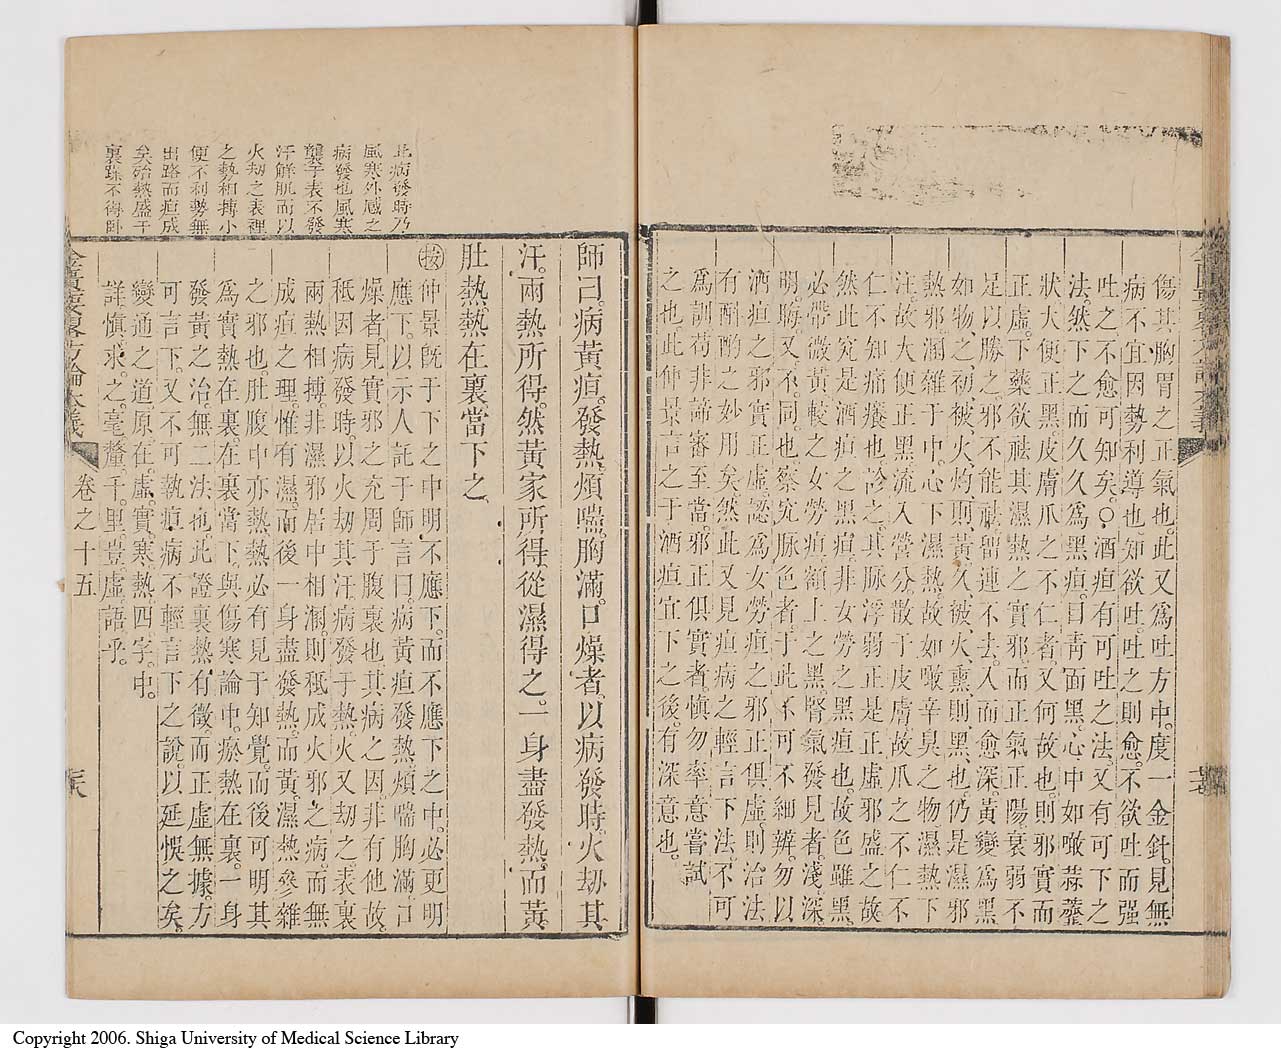 傷其胸胃之正氣也。此又爲吐方中。度一金針。見無
病不宜因勢利導也。知欲吐。吐之則愈。不欲吐而强
吐之不愈可知矣。○酒疸有可吐之法。又有可下之
法。然下之而久久爲黑疸。曰靑面黑。心中如噉蒜虀
狀。大便正黑。皮膚爪之不仁者。又何故也。則邪實而
正虛。下藥欲祛其濕熱之實邪。而正氣正陽衰弱不
足以勝之。邪不能祛。留連不去。入而愈深。黃變爲黑
如物之初被火灼則黃。久被火熏則黑也。仍是濕邪
熱邪。溷雜于中。心下濕熱。故如噉辛臭之物。濕熱下
注。故大便正黑。流入營分。散于皮膚。故爪之不仁。不
仁不知痛癢也。診之其脉浮弱。正是正虛邪盛之故
然此究是酒疸之黑疸。非女勞之黑疸也。故色雖黑
必帶微黃。較之女勞疸額上之黑。腎氣發見者。淺深
明晦又不同也。察究脉色者。于此不可不細辨。勿以
酒疸之邪實正虛。認爲女勞疸之邪正俱虛。則治法
有酌酌之妙用矣。然此又見疸病之輕言下法。不可
爲訓。苟非諦審至當。邪正俱實者。愼勿率意嘗試
之也。此仲景言之于酒疸宜下之後。有深意也。
師曰。病黃疸。發熱煩喘。胸滿。口燥者。以病發時。火劫其
汗。兩熱所得。然黃家所得。從濕得之。一身盡發熱。而黃。
肚熱。熱在裏。當下之。
按仲景旣于下之中。明不應下。而不應下之中。必更明
應下。以示人託于師言曰。病黃疸發熱煩喘胸滿。口
燥者。見實邪之充周于腹裏也。其病之因。非有他故。
秪因病發時。以火劫其汗。病發于熱。火又劫之。表裏
兩熱相搏。非濕邪居中相溷。則秪成火邪之病。而無
成疸之理。惟有濕。而後一身盡發熱。而黃。濕熱參雜
之邪也。肚腹中亦熱。熱必有見于知覺。而後可明其
爲實熱在裏。在裏當下。與傷寒論中。瘀熱在裏。一身
發黃之治。無二法也。此證裏熱有徵。而正虛無據。方
可言下。又不可執疸病不輕言下之說。以延悞之矣。
變通之道。原在虛實寒熱四字。中。
詳愼。求之。毫釐千里。豈虛語乎。
此病發時乃
風寒外感之
病發也風寒
襲于表不發
汗解肌而以
火劫之表裡
之熱相搏小
便不利勢無
出路而疸成
矣殆熱盛于
裏躁不得卧
金匱要畧方論本義
卷之十五